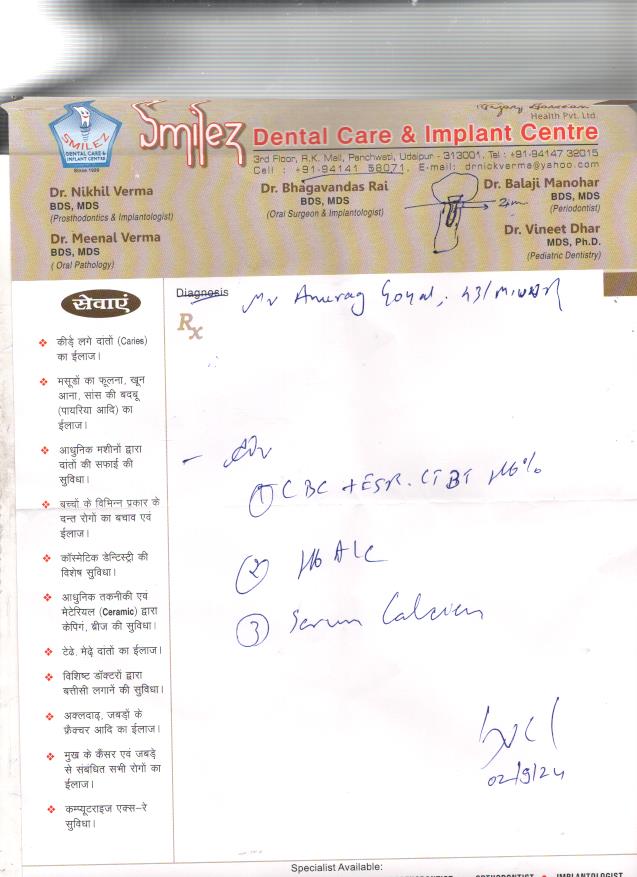 Health Pvt. Ltd.
SMILEZ
DENTAL CARE &
IMPLANT CENTRE
Since 1999
Smilez Dental Care & Implant Centre
3rd Floor, R.K. Mall, Panchwati, Udaipur - 313001. Tel : +91-94147 32015
Cell : +91-94141 58071, E-mail: drnickverma@yahoo.com
Dr. Nikhil Verma
BDS, MDS
(Prosthodontics & Implantologist)
Dr. Meenal Verma
BDS, MDS
( Oral Pathology)
Dr. Bhagavandas Rai
BDS, MDS
(Oral Surgeon & Implantologist)
2mm
Dr. Balaji Manohar
BDS, MDS
(Periodontist)
Dr. Vineet Dhar
MDS, Ph.D.
(Pediatric Dentistry)
सेवाएं
कीड़े लगे दांतों (Caries)
का ईलाज।
मसूडों का फूलना, खून
आना, सांस की बदबू
(पायरिया आदि) का
ईलाज।
आधुनिक मशीनों द्वारा
दांतों की सफाई की
सुविधा।
बच्चों के विभिन्न प्रकार के
दन्त रोगों का बचाव एवं
ईलाज।
कॉस्मेटिक डेन्टिस्ट्री की
विशेष सुविधा।
आधुनिक तकनीकी एवं
मेटेरियल (Ceramic) द्वारा
केपिंग, ब्रीज की सुविधा।
टेढे, मेढ़े दांतों का ईलाज।
विशिष्ट डॉक्टरों द्वारा
बत्तीसी लगाने की सुविधा।
अक्लदाढ़, जबड़ों के
फ्रैक्चर आदि का ईलाज।
मुख के कैंसर एवं जबड़े
से संबंधित सभी रोगों का
ईलाज।
कम्प्यूटराइज एक्स-रे
सुविधा।
Diagnosis
Mr Anurag Goyal, 43/M
Rx
① CBC + ESR. CTBT Hb%
② HbA1c
③ Serum Calcium
02/9/24
Specialist Available:
ORTHODONTIST IMPLANTOLOGIST